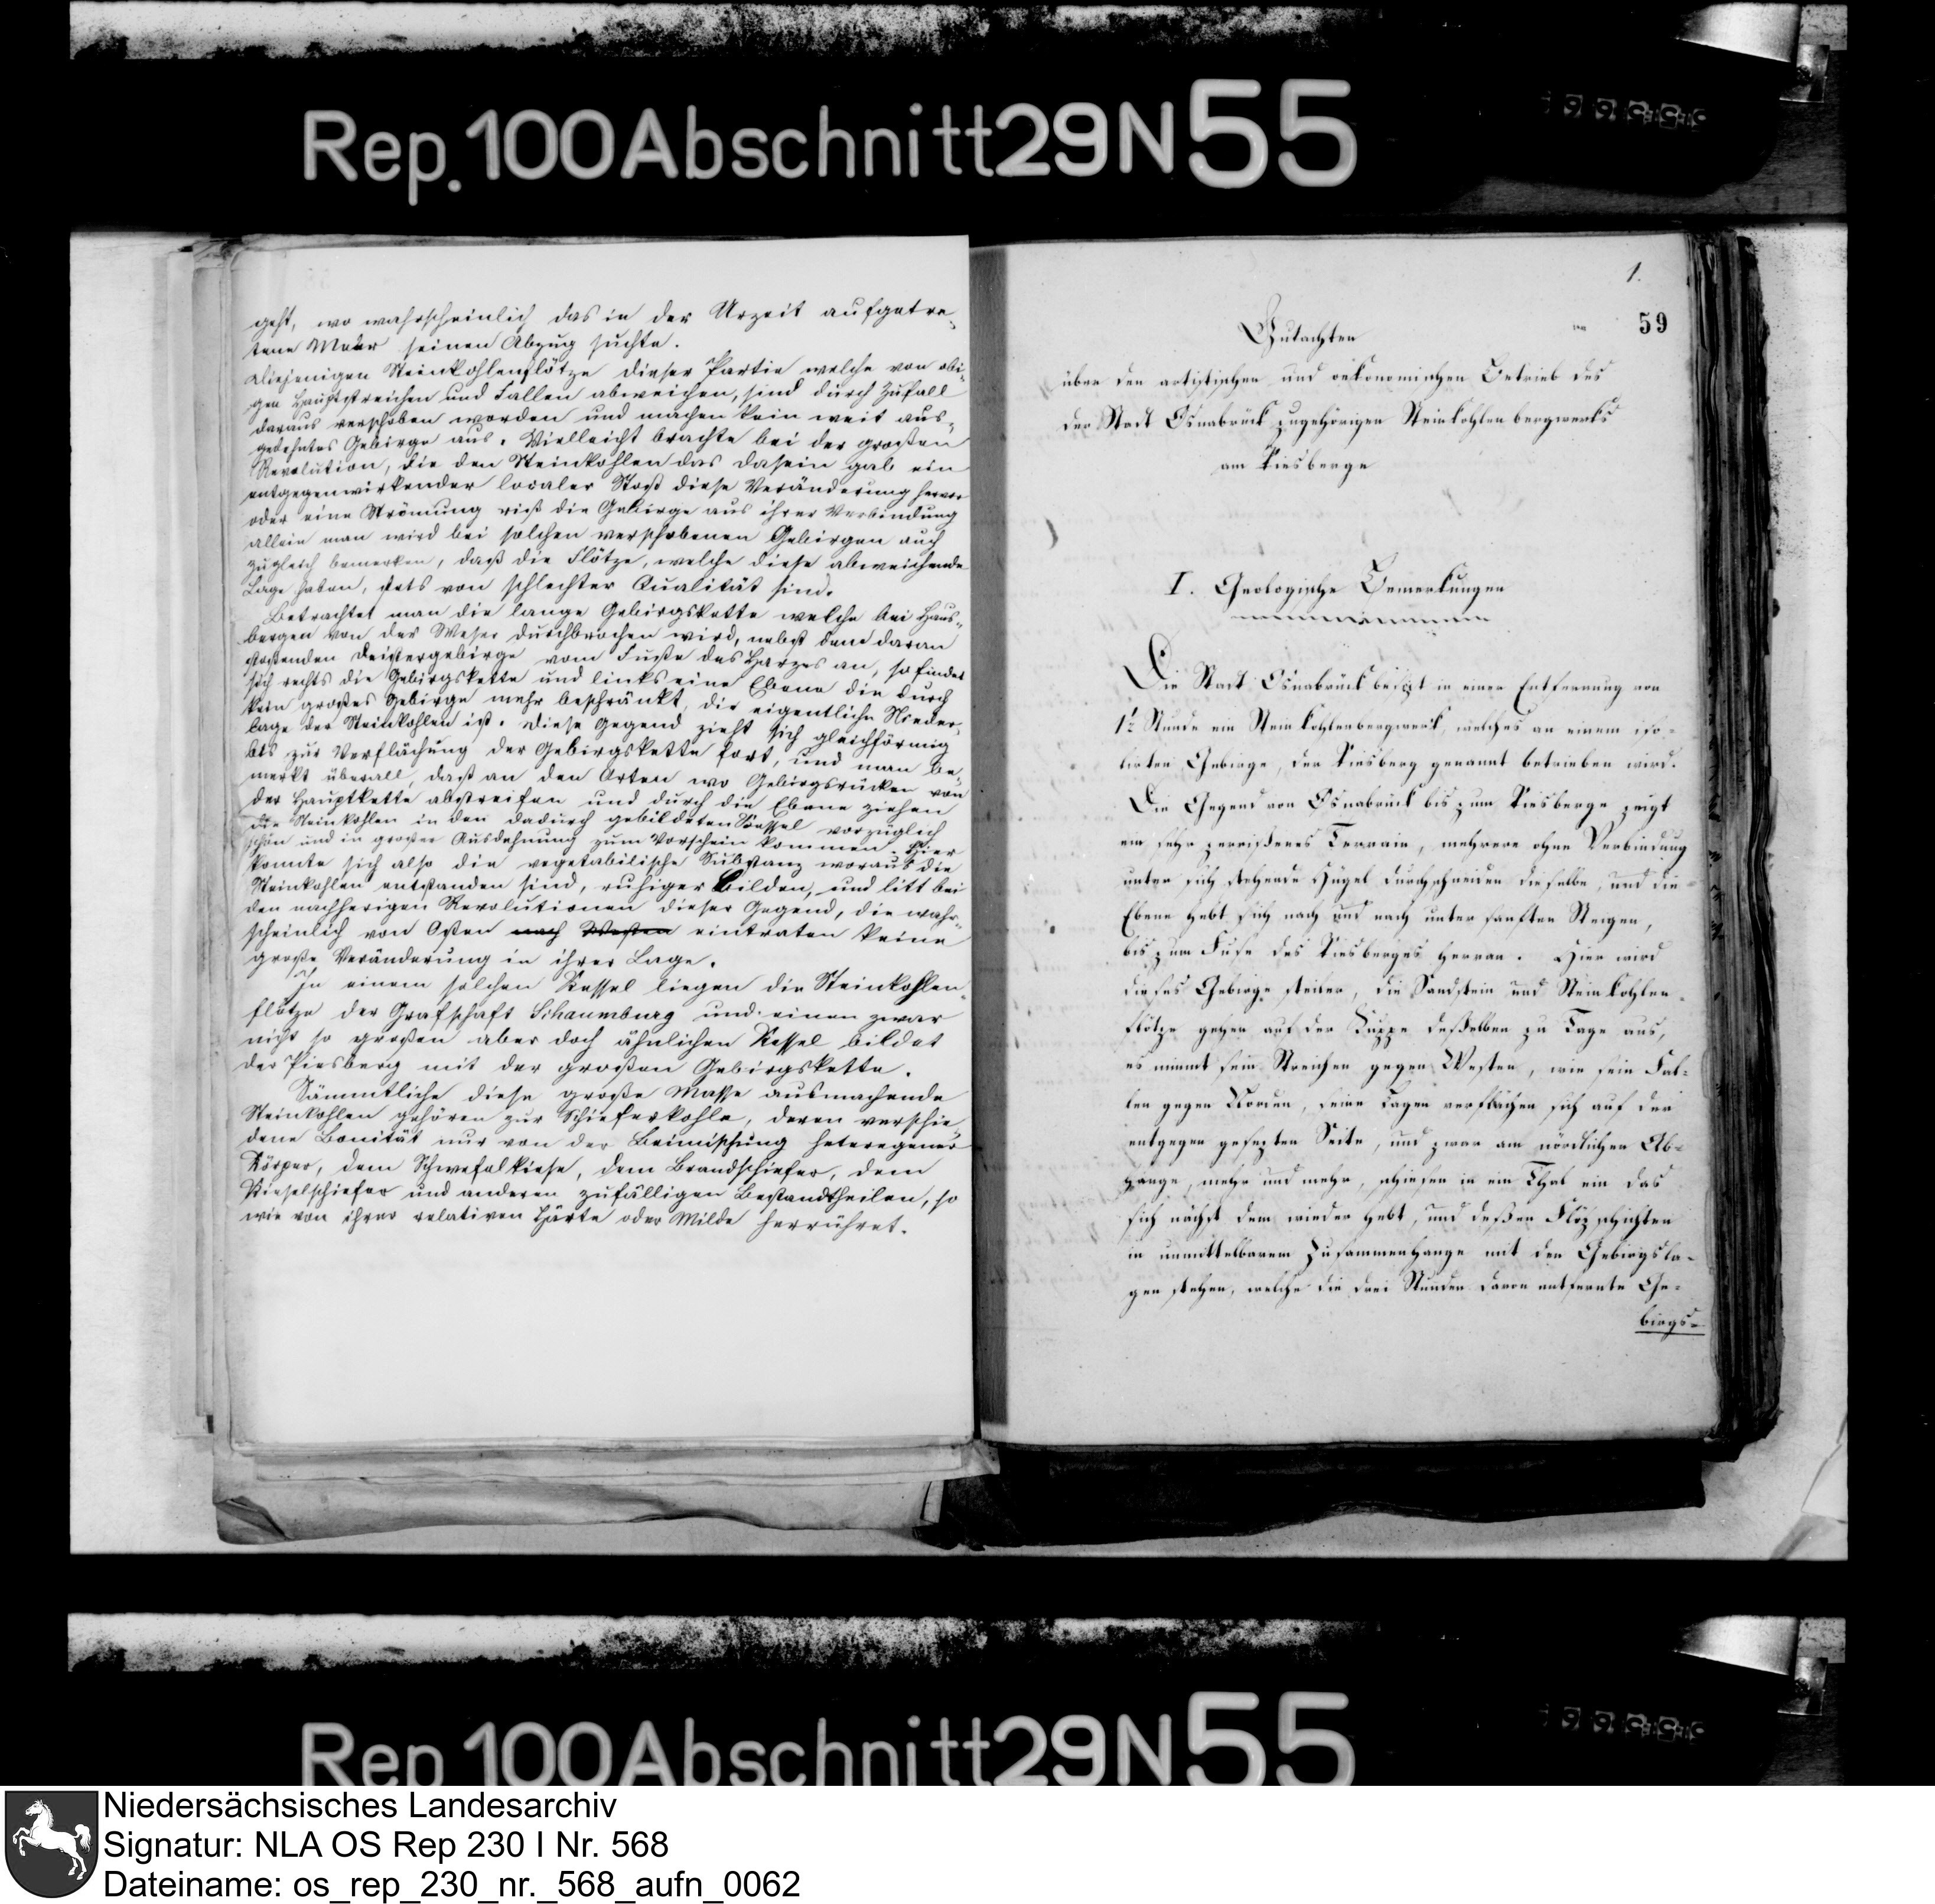 Rep. 100 Abschnitt 29 N 55
geht, wo wahrscheinlich das in der Urzeit aufgetre-
tene Meer seinen Abzug suchte.
Diejenigen Steinkohlenflötze dieser Partie welche von obi-
gen Hauptstreichen und Fallen abweichen, sind durch Zufall
daraus verschoben worden und machen kein weit aus-
gedehntes Gebirge aus. Vielleicht brachte bei der großen
Revolution, die den Steinkohlen das Dasein gab ein
entgegenwirkender localer Stoß diese Veränderung hervor
oder eine Strömung riß die Gebirge aus ihrer Verbindung
allein man wird bei solchen verschobenen Gebirgen auch
zugleich bemerken, daß die Flötze, welche diese abweichende
Lage haben, stets von schlechter Qualität sind.
Betrachtet man die lange Gebirgskette welche bei Haus-
bergen von der Weser durchbrochen wird, nebst dem daran
stoßenden Deistergebirge vom Fuße des Harzes an, so findet
sich rechts die Gebirgskette und links eine Ebene die durch
kein großes Gebirge mehr beschränkt, die eigentliche Nieder-
lage der Steinkohlen ist. Diese Gegend zieht sich gleichförmig
bis zur Verflächung der Gebirgskette fort, und man be-
merkt überall, daß an den Orten wo Gebirgsrücken von
der Hauptkette abstreifen und durch die Ebene ziehen
die Steinkohlen in den dadurch gebildeten Kessel vorzüglich
schön und in großer Ausdehnung zum Vorschein kommen. Hier
konnte sich also die vegetabilische Substanz woraus die
Steinkohlen entstanden sind, ruhiger bilden, und litt bei
den nachherigen Revolutionen dieser Gegend, die wahr-
scheinlich von Osten nach Westen eintraten keine
große Veränderung in ihrer Lage.
In einem solchen Kessel liegen die Steinkohlen-
flötze der Grafschaft Schaumburg und einen zwar
nicht so großen aber doch ähnlichen Kessel bildet
der Piesberg mit der großen Gebirgskette.
Sämmtliche diese große Masse ausmachende
Steinkohlen gehören zur Schieferkohle, deren verschie-
dene Bonität nur von der Beimischung heterogener
Körper, dem Schwefelkiese, dem Brandschiefer, dem
Kieselschiefer und anderen zufälligen Bestandtheilen, so
wie von ihrer relativen Härte oder Milde herrühret.
1.
59
Gutachten
über den artistischen und oekonomischen Betrieb des
der Stadt Osnabrück zugehörigen Steinkohlenbergwerks
am Piesberge
I. Geologische Bemerkungen
Die Stadt Osnabrück besizt in einer Entfernung von
1½ Stunde ein Steinkohlenbergwerk, welches an einem iso-
lirten Gebirge, der Piesberg genannt betrieben wird.
Die Gegend von Osnabrück bis zum Piesberge zeigt
ein sehr zerrißenes Terrain, mehrere ohne Verbindung
unter sich stehende Hügel durchschneiden dieselbe, und die
Ebene hebt sich nach und nach unter sanften Steigen,
bis zum Fuße des Piesberges heran. Hier wird
dieses Gebirge steiler, die Sandstein und Steinkohlen-
flötze gehen auf der Kuppe deßelben zu Tage aus,
es nimmt sein Streichen gegen Westen, wie sein Fal-
len gegen Norden, seine Lagen verflächen sich auf der
entgegen gesezten Seite, und zwar am nördlichen Ab-
hange, mehr und mehr, schiesen in ein Thal ein das
sich nächst dem wieder hebt, und deßen Flözschichten
in unmittelbarem Zusammenhange mit den Gebirgsla-
gen stehen, welche die drei Stunden davon entfernte Ge-
birgs-
Rep 100 Abschnitt 29 N 55
Niedersächsisches Landesarchiv
Signatur: NLA OS Rep 230 I Nr. 568
Dateiname: os_rep_230_nr._568_aufn_0062